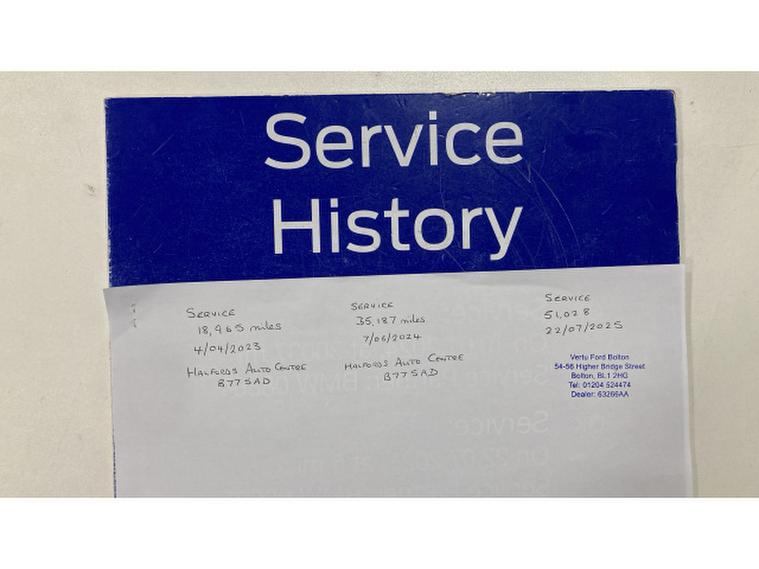 Service
History
SERVICE
18,965 miles
4/04/2023
HALFORDS AUTO CENTRE
B77 5AD
SERVICE
35,187 miles
7/06/2024
HALFORDS AUTO CENTRE
B77 5AD
SERVICE
51,028
22/07/2025
Vertu Ford Bolton
54-56 Higher Bridge Street
Bolton, BL1 2HG
Tel: 01204 524474
Dealer: 63266AA